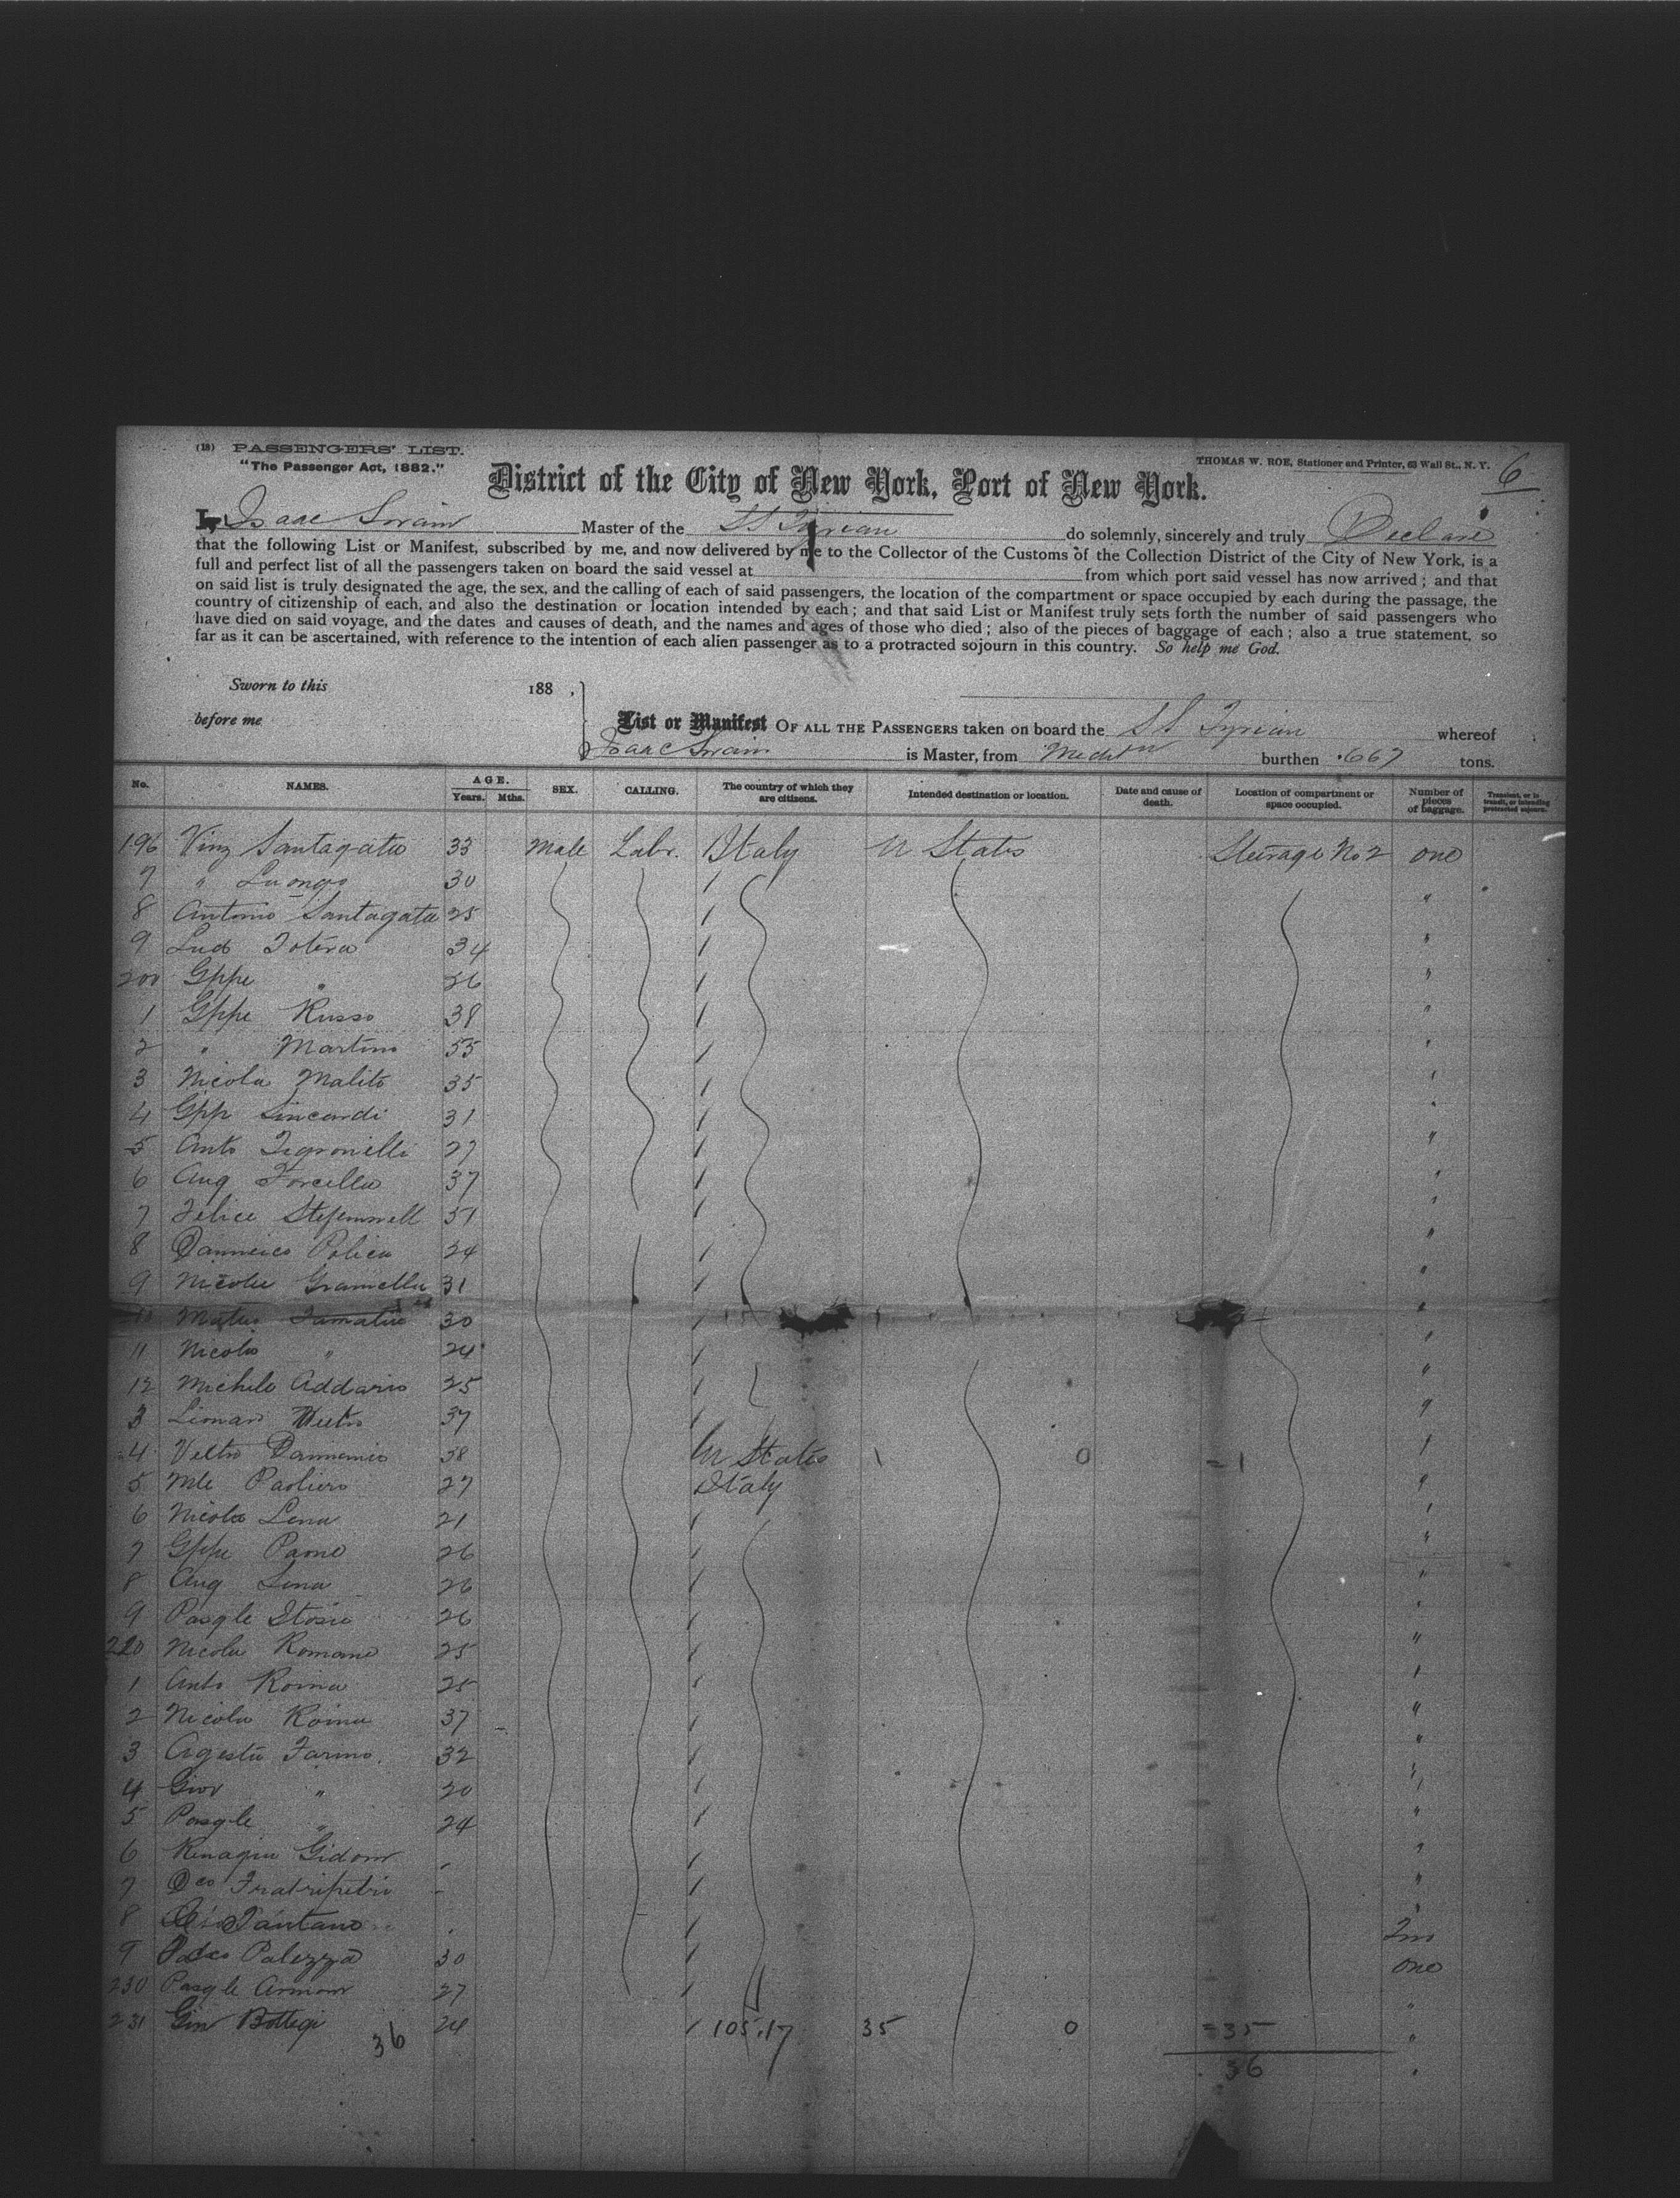 (18) PASSENGERS' LIST.
"The Passenger Act, 1882."
THOMAS W. ROE, Stationer and Printer, 63 Wall St., N. Y.
6
District of the City of New York, Port of New York.
I, Isaac Swain Master of the SS Tyrian do solemnly, sincerely and truly Declare
that the following List or Manifest, subscribed by me, and now delivered by me to the Collector of the Customs of the Collection District of the City of New York, is a
full and perfect list of all the passengers taken on board the said vessel at from which port said vessel has now arrived; and that
on said list is truly designated the age, the sex, and the calling of each of said passengers, the location of the compartment or space occupied by each during the passage, the
country of citizenship of each, and also the destination or location intended by each; and that said List or Manifest truly sets forth the number of said passengers who
have died on said voyage, and the dates and causes of death, and the names and ages of those who died; also of the pieces of baggage of each; also a true statement, so
far as it can be ascertained, with reference to the intention of each alien passenger as to a protracted sojourn in this country. So help me God.
Sworn to this 188 ,
before me
List or Manifest OF ALL THE PASSENGERS taken on board the SS Tyrian whereof
Isaac Swain is Master, from burthen 667 tons.
No. NAMES. AGE. Years. Mths. SEX. CALLING. The country of which they are citizens. Intended destination or location. Date and cause of death. Location of compartment or space occupied. Number of pieces of baggage. Transient, or in transit, or intending protracted sojourn.
196 Vinz Santagata 33 Male Labr. Italy U States Steerage No 2 one
7 " Luongo 30 "
8 Antonio Santagata 25 "
9 Lud Totera 34 "
200 Gppe " 26 "
1 Gppe Russo 38 "
2 " Martino "
3 Nicola Malito 35 "
4 Gpp 31 "
5 Anto 27 "
6 Ang Forcella 37 "
7 Felice "
8 Policu 24 "
9 Nicola Gramella 31 "
30 "
11 Nicola " 24 "
12 Michele Addario 25 "
3 37 "
4 Veltro U States 1 0 = 1 "
5 Mle Paoliero 27 Italy "
6 Nicola Lena 21 "
7 Gppe 26 "
8 Ang Lena 26 "
9 Pasqle 26 "
220 Nicola Romano 25 "
1 Anto Roma 25 "
2 Nicola Roma 37 "
3 Farino 32 "
4 Giov " 20 "
5 Pasqle " 24 "
6 "
7 Dco Fratripetri "
8 Pantano
9 Palezza 30 one
230 Pasqle 27 "
231 Bottegi 24 105.17 35 0 = 35 "
36 36 "